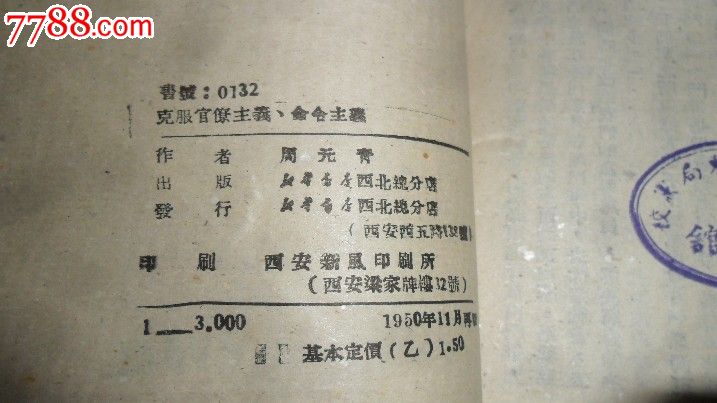 7788.com
書號：0132
克服官僚主義、命令主義
作者 周元青
出版 新華書店西北總分店
發行 新華書店西北總分店
（西安西五路132號）
印刷 西安新風印刷所
（西安梁家牌樓32號）
1__3.000 1950年11月再
基本定價（乙）1.50
校業局